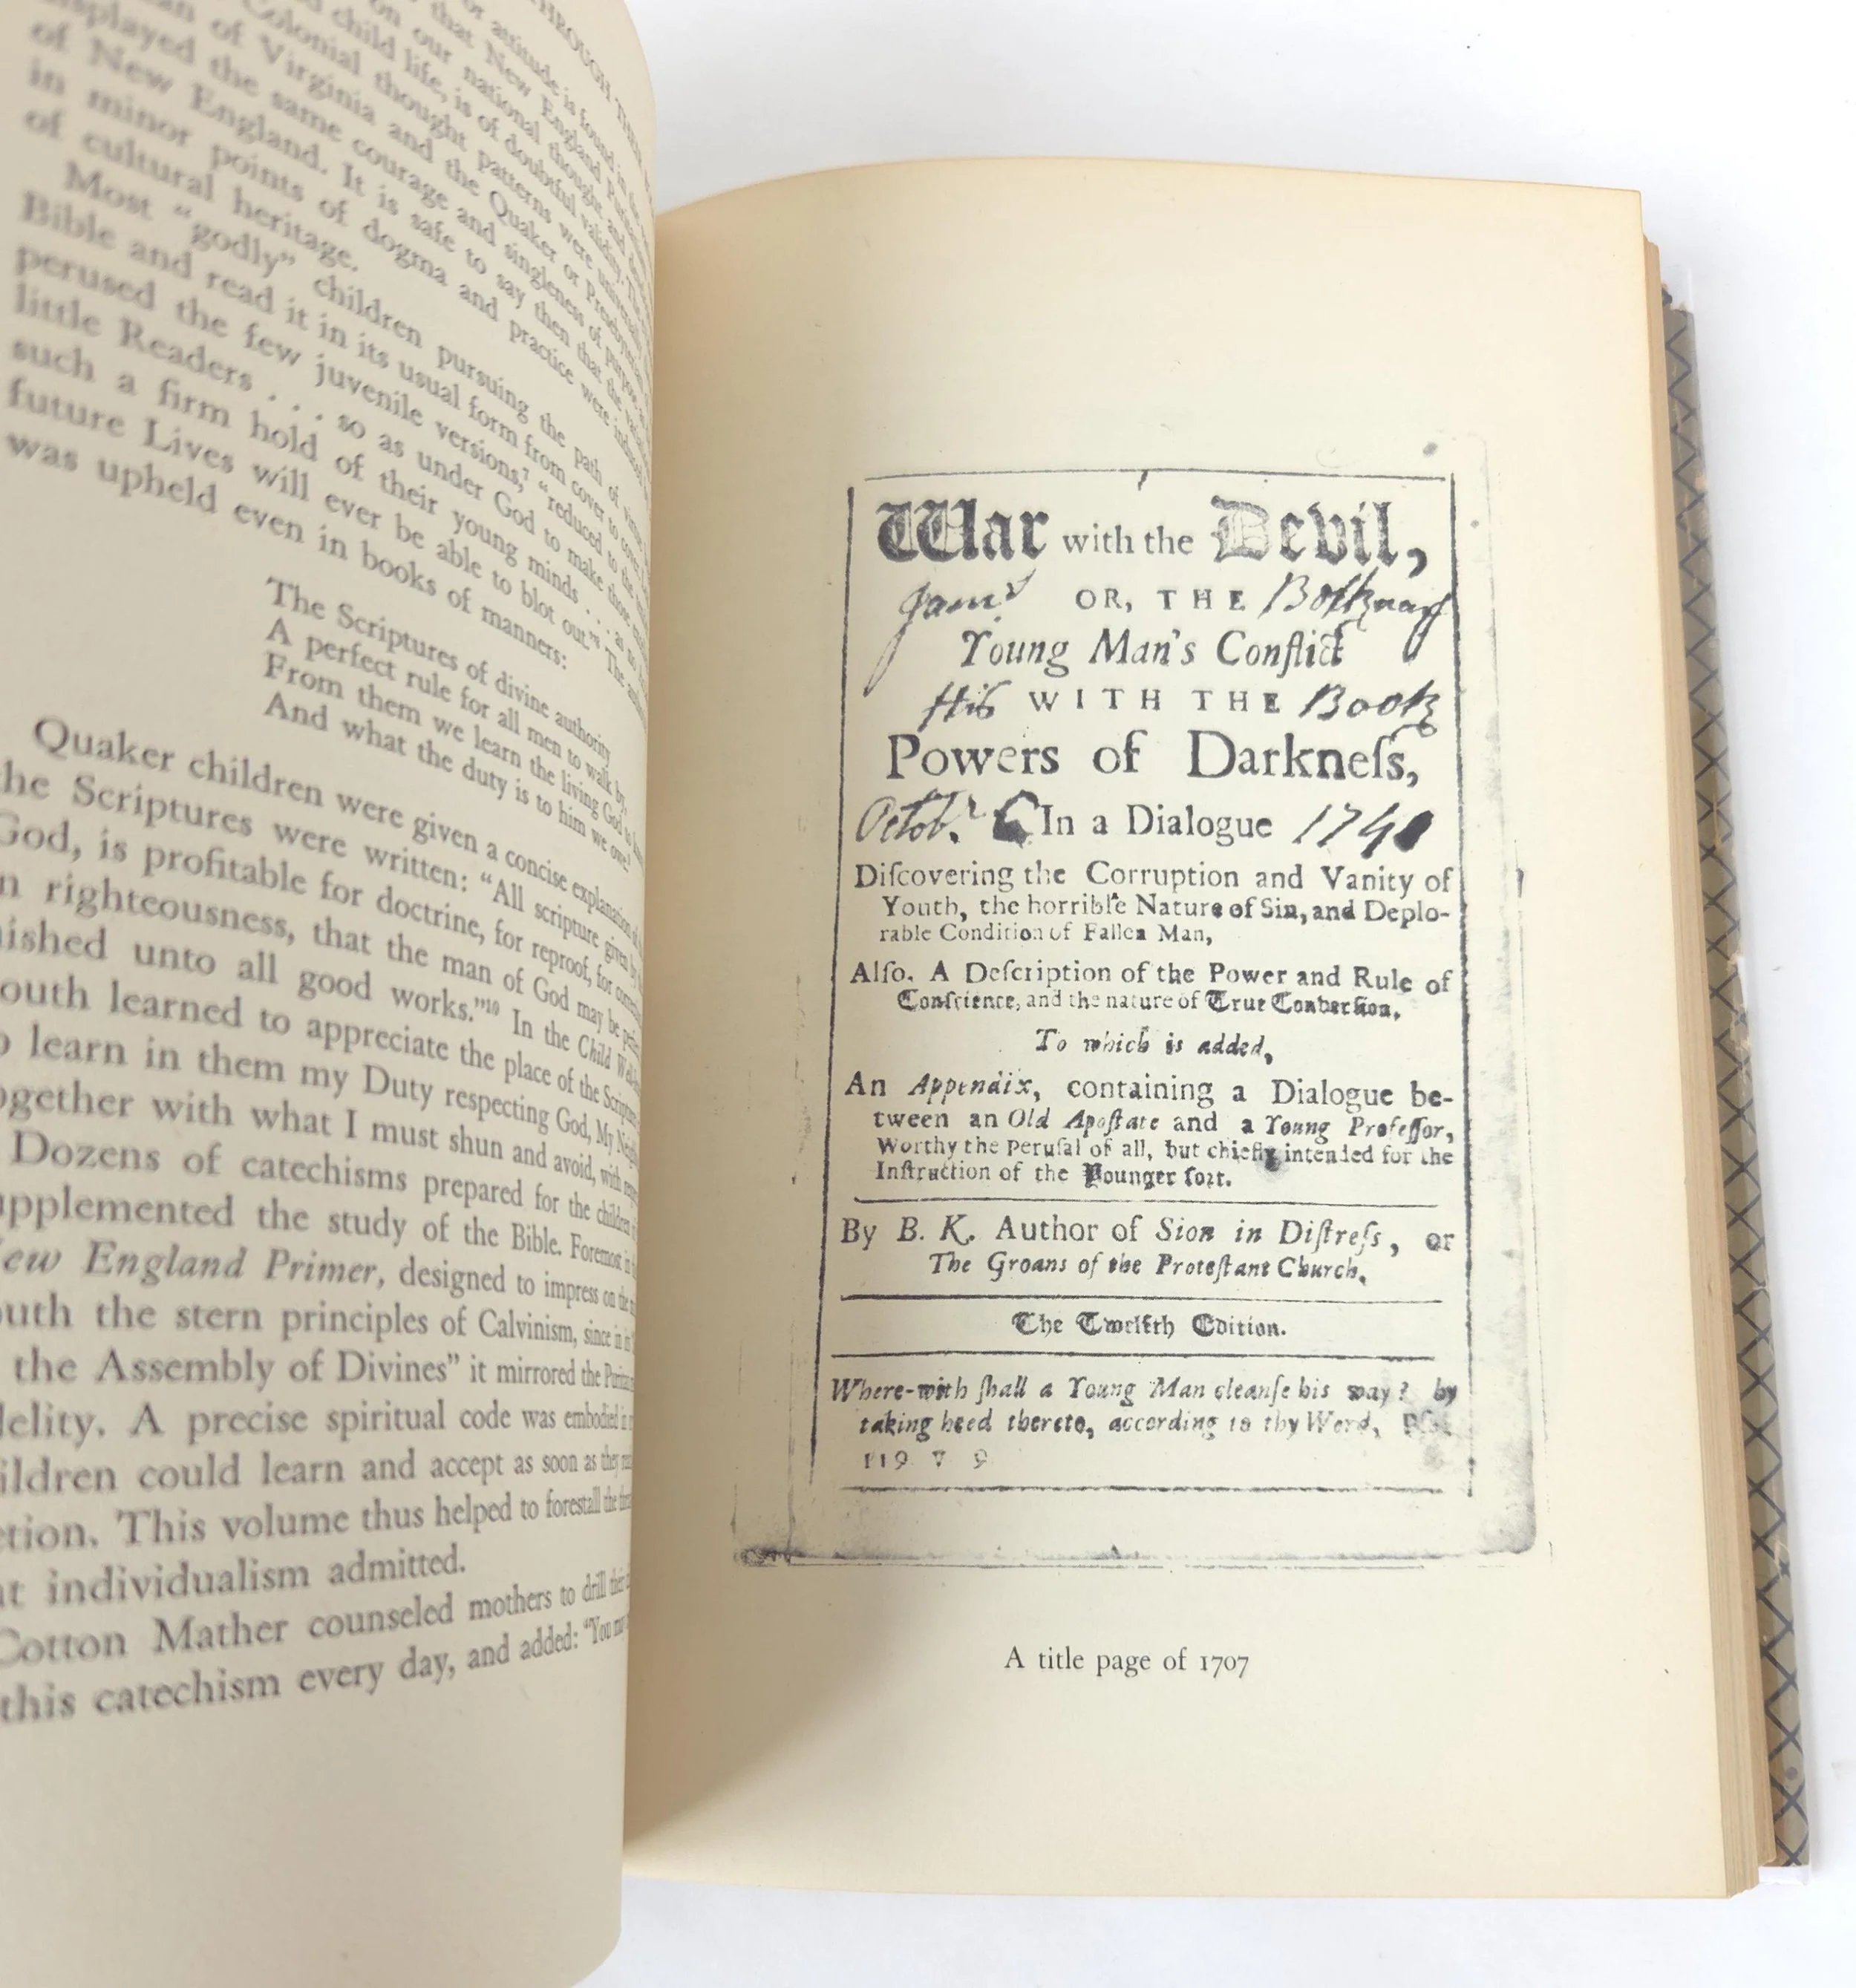 THROUGH THEIR
attitude is found in
that New England Puritan
on our national thought and
child life, is of doubtful validity. The
Colonial thought patterns were universal
of Virginia and the Quaker or Presbyterian
displayed the same courage and singleness of purpose as
of New England. It is safe to say then that the
in minor points of dogma and practice were
of cultural heritage.
Most “godly” children pursuing the path of
Bible and read it in its usual form from cover to cover
perused the few juvenile versions,⁷ “reduced to the
little Readers . . . so as under God to make those
such a firm hold of their young minds . . . as no
future Lives will ever be able to blot out.”⁸ The
was upheld even in books of manners:
The Scriptures of divine authority
A perfect rule for all men to walk by,
From them we learn the living God to know
And what the duty is to him we owe.⁹
Quaker children were given a concise explanation of
the Scriptures were written: “All scripture given by
God, is profitable for doctrine, for reproof, for
n righteousness, that the man of God may be
ished unto all good works.”¹⁰ In the Child
outh learned to appreciate the place of the
o learn in them my Duty respecting God, My
ogether with what I must shun and avoid, with
Dozens of catechisms prepared for the children
upplemented the study of the Bible. Foremost in
ew England Primer, designed to impress on the
outh the stern principles of Calvinism, since in
the Assembly of Divines” it mirrored the
delity. A precise spiritual code was embodied
ildren could learn and accept as soon as they
etion. This volume thus helped to forestall the
at individualism admitted.
Cotton Mather counseled mothers to drill their
this catechism every day, and added: “You
War with the Devil,
Jams OR, THE
Young Man's Conflict
His WITH THE Book
Powers of Darkneſs,
Octobr 6 In a Dialogue 1740
Diſcovering the Corruption and Vanity of
Youth, the horrible Nature of Sin, and Deplo-
rable Condition of Fallen Man,
Alſo. A Deſcription of the Power and Rule of
Conſcience, and the nature of True Converſion.
To which is added,
An Appendix, containing a Dialogue be-
tween an Old Apoſtate and a Young Profeſſor,
Worthy the Peruſal of all, but chiefly intended for the
Inſtruction of the Younger ſort.
By B. K. Author of Sion in Diſtreſs, or
The Groans of the Proteſtant Church.
The Twelfth Edition.
Where-with ſhall a Young Man cleanſe his way? by
taking heed thereto, according to thy Word,
119 v 9
A title page of 1707